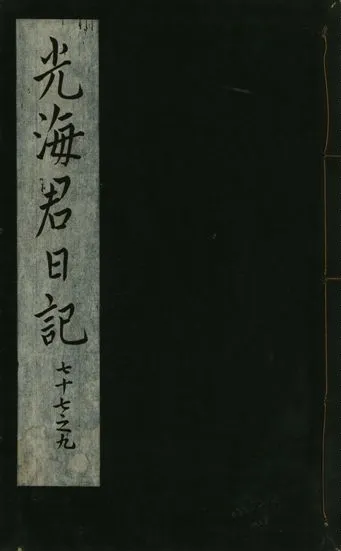 光海君日記
七十七之九